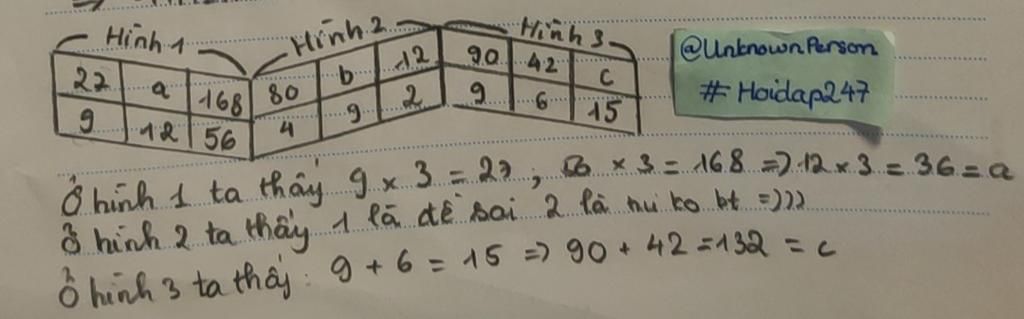 Hình 1
Hình 2
Hình 3
27 a 168 80 b 12 90 42 c
9 12 56 4 9 2 9 6 15
@UnknownPerson
# Hoidap247
Ở hình 1 ta thấy 9 x 3 = 27 ; 56 x 3 = 168 => 12 x 3 = 36 = a
Ở hình 2 ta thấy 1 là đề sai 2 là mi ko bt =)))
Ở hình 3 ta thấy : 9 + 6 = 15 => 90 + 42 = 132 = c